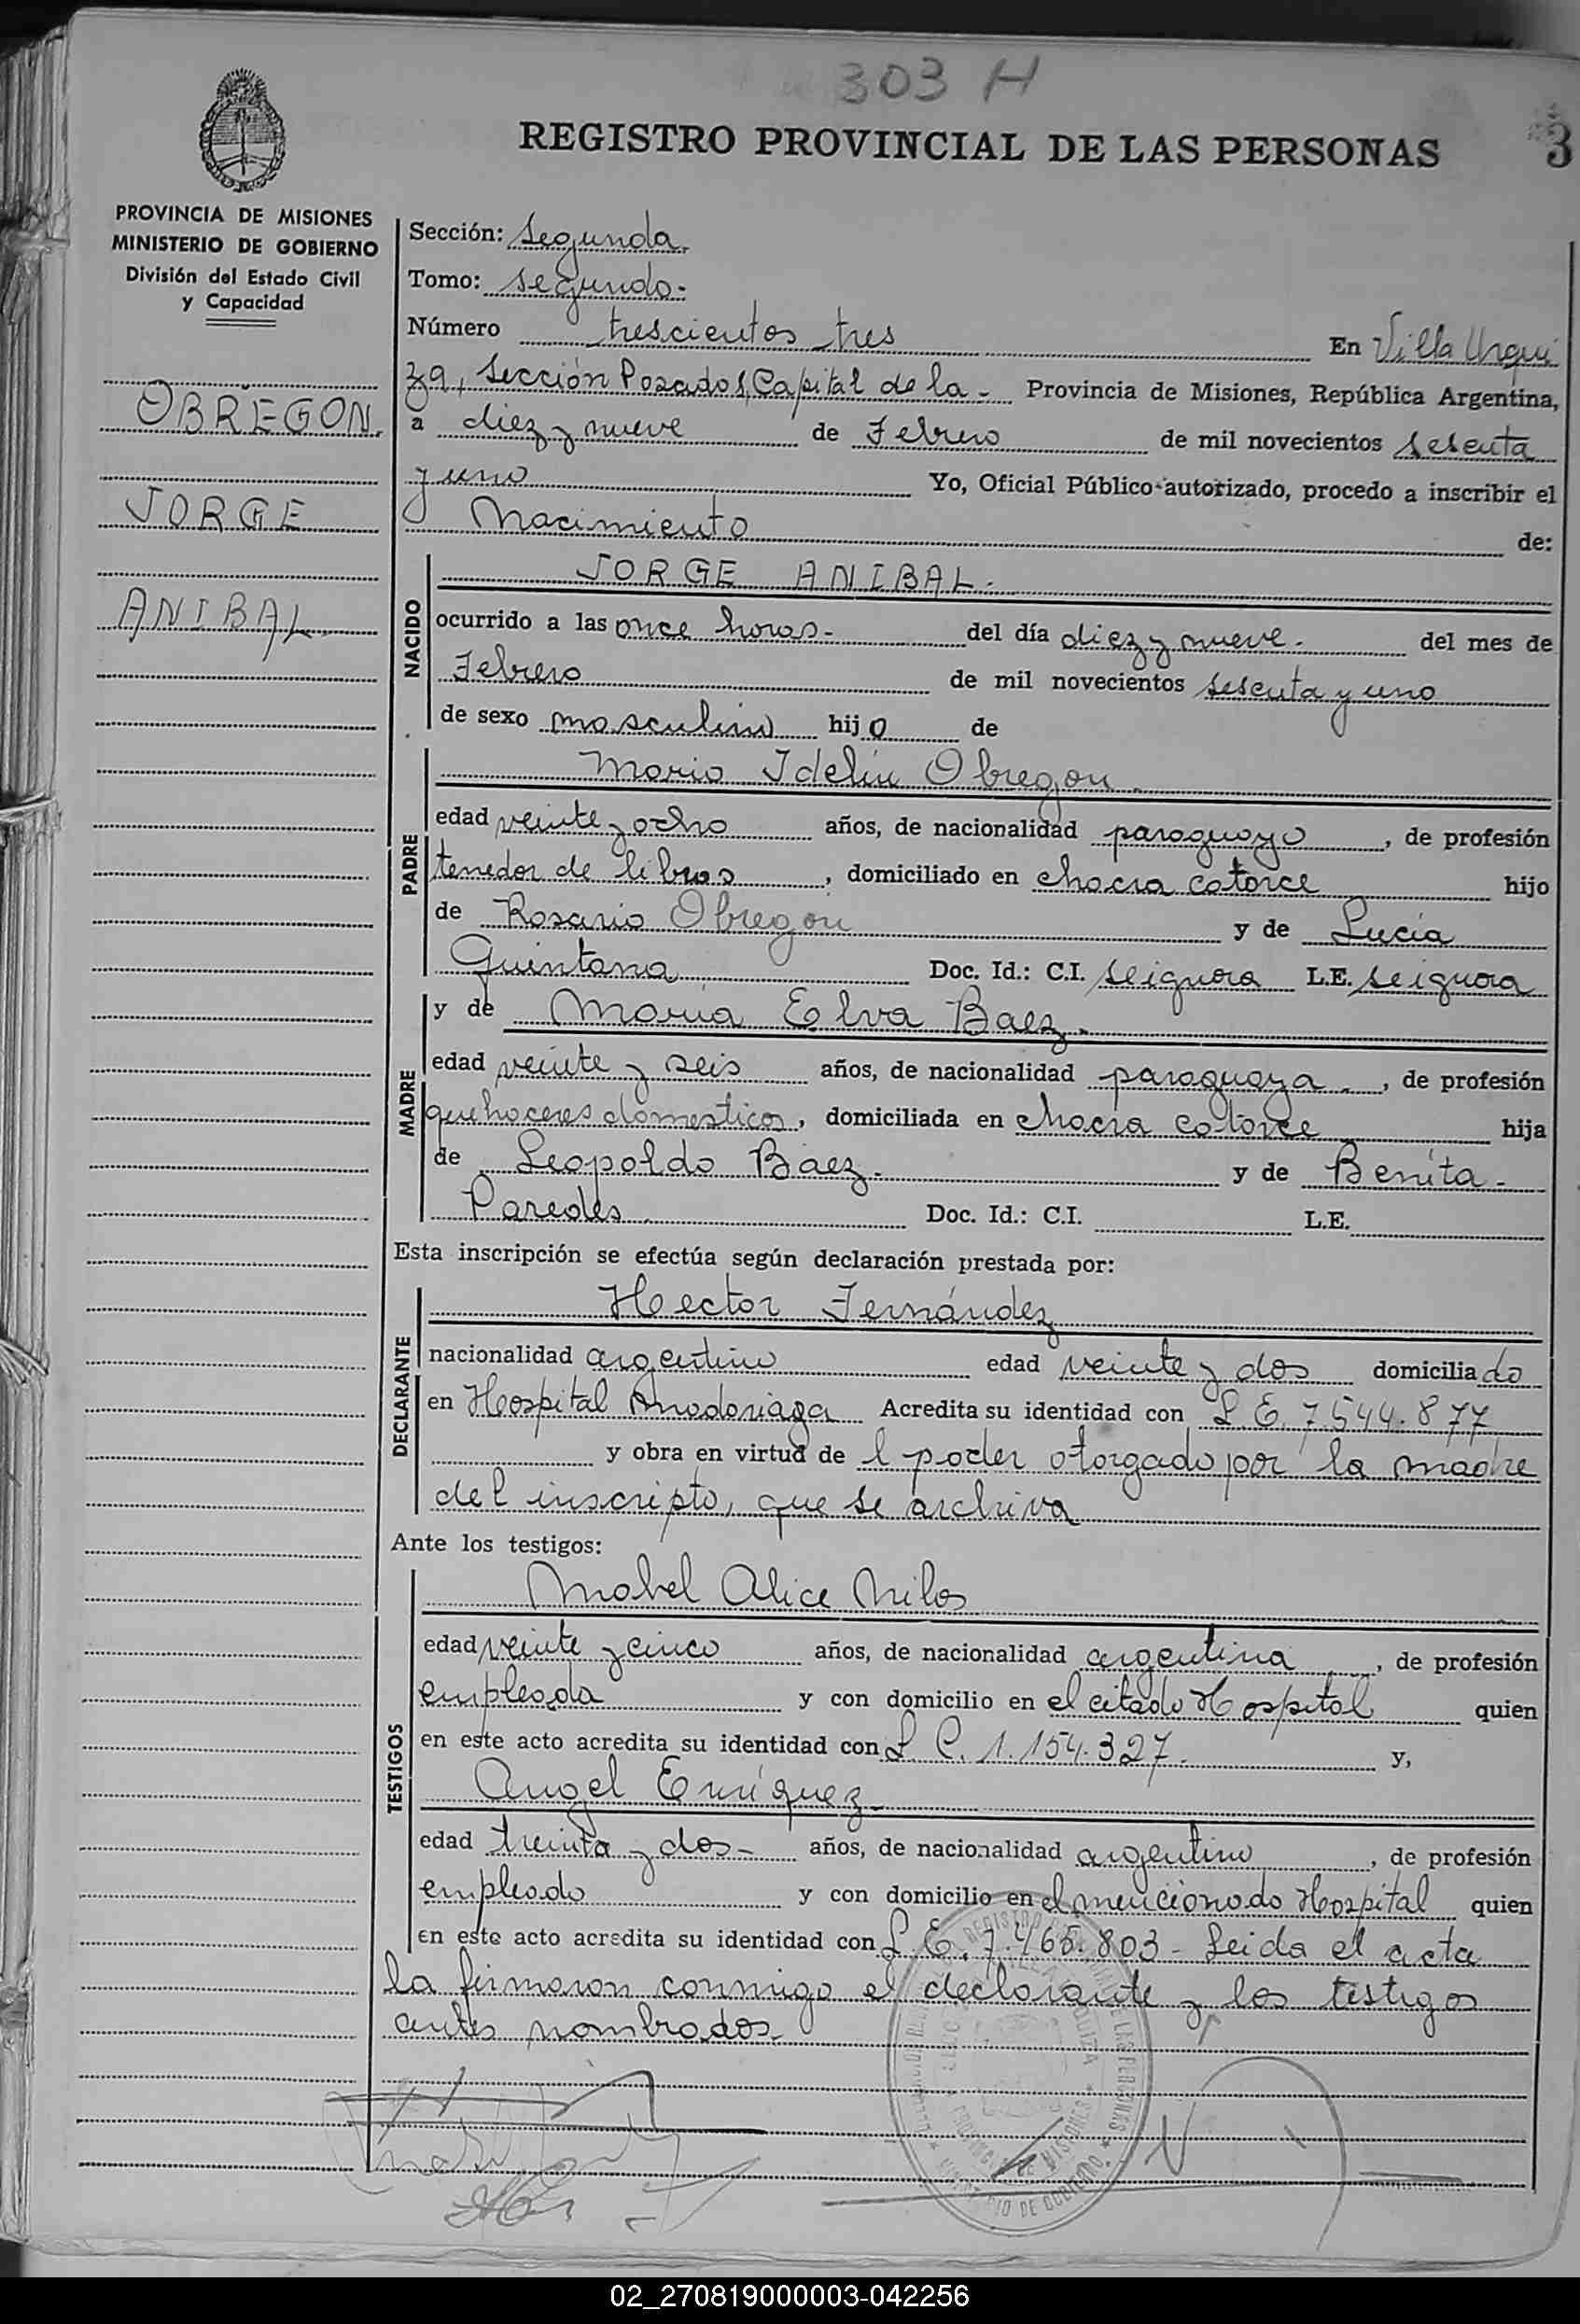 303 H
REGISTRO PROVINCIAL DE LAS PERSONAS 3
PROVINCIA DE MISIONES
MINISTERIO DE GOBIERNO
División del Estado Civil
y Capacidad
OBREGON
JORGE
ANIBAL
Sección: Segunda
Tomo: segundo-
Número trescientos tres En Villa Urqui
za, Sección Posadas, Capital de la- Provincia de Misiones, República Argentina,
a diez y nueve de Febrero de mil novecientos sesenta
y uno Yo, Oficial Público autorizado, procedo a inscribir el
Nacimiento de:
NACIDO
JORGE ANIBAL-
ocurrido a las once horas- del día diez y nueve- del mes de
Febrero de mil novecientos sesenta y uno
de sexo masculino hijo de
PADRE
Mario Idelin Obregon
edad veinte y ocho años, de nacionalidad paraguayo, de profesión
tenedor de libros, domiciliado en chacra catorce hijo
de Rosario Obregon y de Lucia
Quintana Doc. Id.: C.I. se ignora L.E. se ignora
MADRE
y de Maria Elva Baez-
edad veinte y seis años, de nacionalidad paraguaya, de profesión
quehaceres domesticos, domiciliada en chacra catorce hija
de Leopoldo Baez- y de Benita-
Paredes Doc. Id.: C.I. L.E.
Esta inscripción se efectúa según declaración prestada por:
DECLARANTE
Hector Fernández
nacionalidad argentino edad veinte y dos domiciliado
en Hospital Madariaga Acredita su identidad con L.E. 7.544.877
y obra en virtud de l poder otorgado por la madre
del inscripto, que se archiva
Ante los testigos:
TESTIGOS
Mabel Alice Milos
edad veinte y cinco años, de nacionalidad argentina, de profesión
empleada y con domicilio en el citado Hospital quien
en este acto acredita su identidad con L.C. 1.154.327- y,
Angel Enriquez-
edad treinta y dos- años, de nacionalidad argentino, de profesión
empleado y con domicilio en el mencionado Hospital quien
en este acto acredita su identidad con L.E. 7.465.803- Leida el acta
la firmaron conmigo el declarante y los testigos
antes nombrados.
02_270819000003-042256